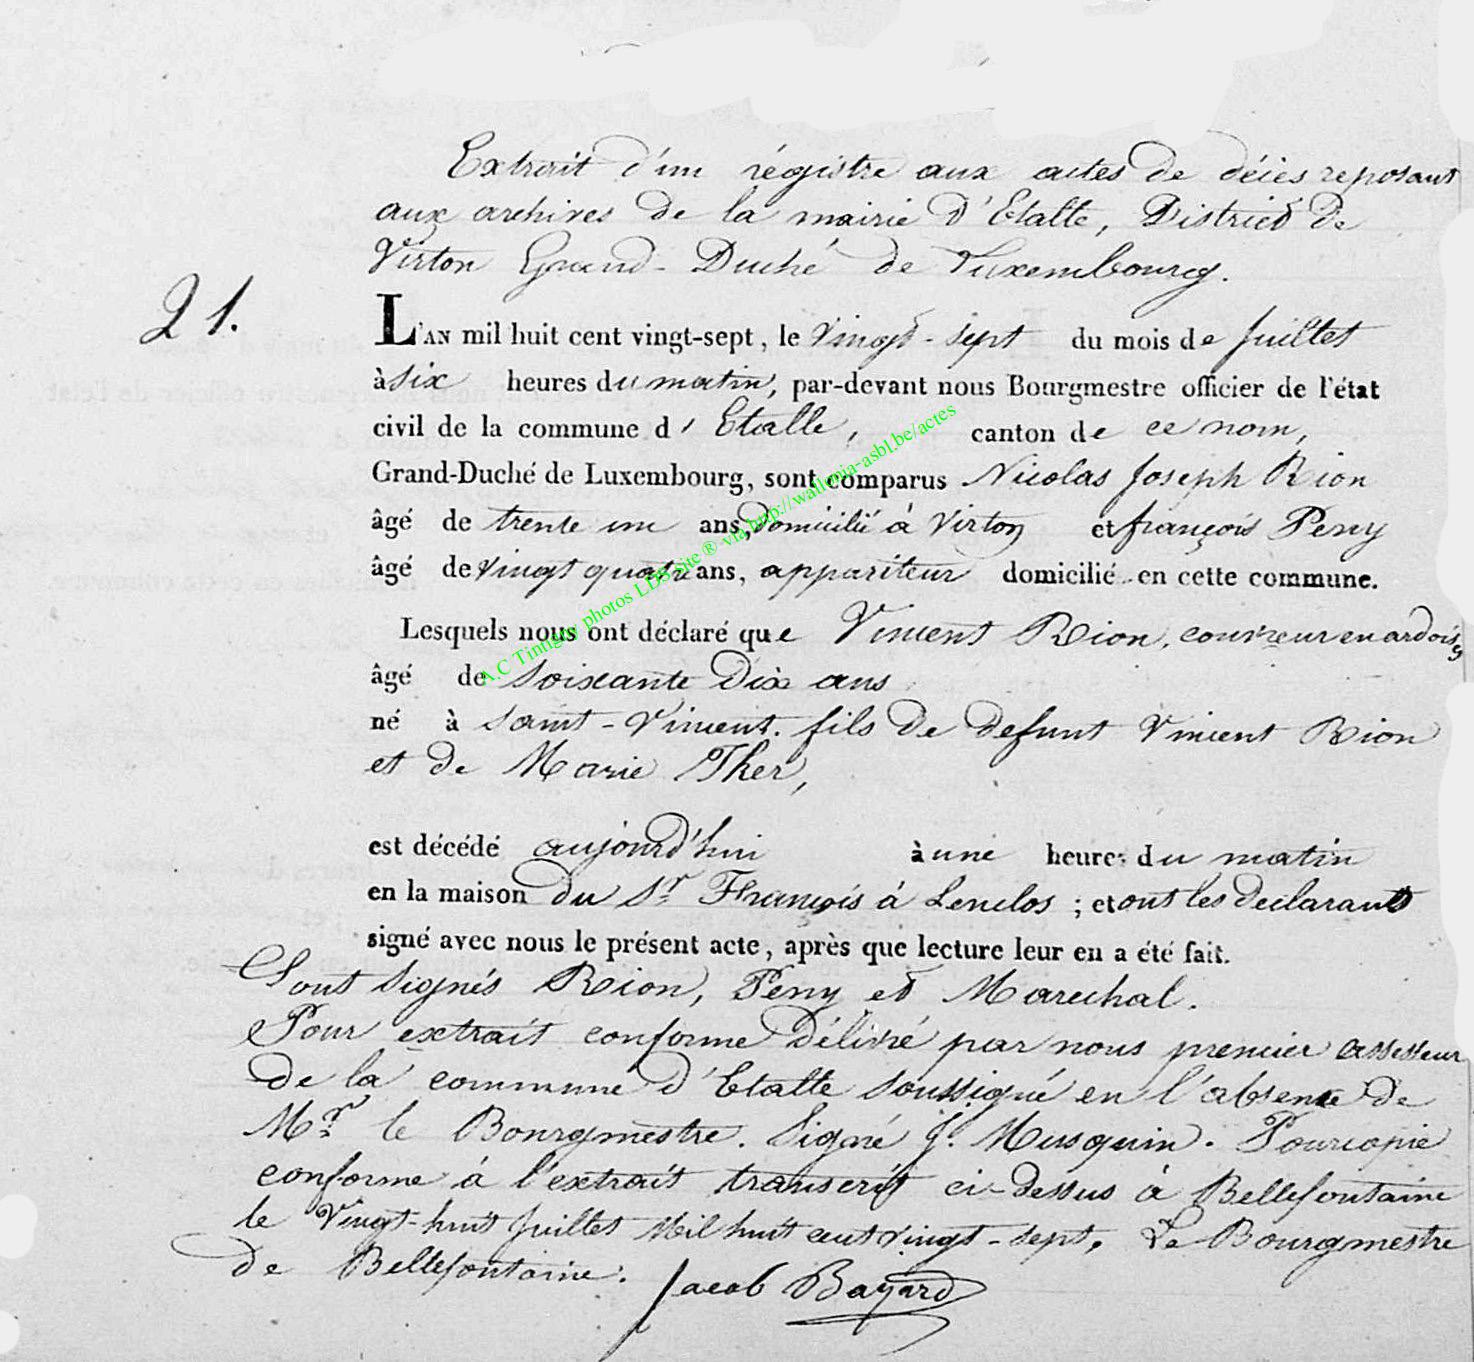 Extrait d'un régistre aux actes de décès reposant
aux archives de la mairie d'Etalle, District de
Virton Grand-Duché de Luxembourg.
21.
L'AN mil huit cent vingt-sept, le vingt-sept du mois de juillet
à six heures du matin, par-devant nous Bourgmestre officier de l'état
civil de la commune d'Etalle, canton de ce nom,
Grand-Duché de Luxembourg, sont comparus Nicolas Joseph Rion
âgé de trente un ans, domicilié à Virton et françois Peny
âgé de vingt quatre ans, appariteur domicilié en cette commune.
Lesquels nous ont déclaré que Vincent Rion, couvreur en ardoises
âgé de soixante dix ans
né à Saint-Vincent. fils de defunt Vincent Rion
et de Marie Ther,
est décédé aujourd'hui à une heure du matin
en la maison du Sr. François à Lenclos ; et ont les declarants
signé avec nous le présent acte, après que lecture leur en a été fait.
Sont signés Rion, Peny et Marechal.
Pour extrait conforme délivré par nous premier assesseur
de la commune d'Etalle soussigné en l'absence de
Mr. le Bourgmestre. Signé J. Musquin. Pour copie
conforme à l'extrait transcrit ci-dessus à Bellefontaine
le vingt-huit juillet mil huit cent vingt-sept. Le Bourgmestre
de Bellefontaine.
Jacob Bayard
A.C Tintigny photos LDS site ® via http://wallonia-asbl.be/actes